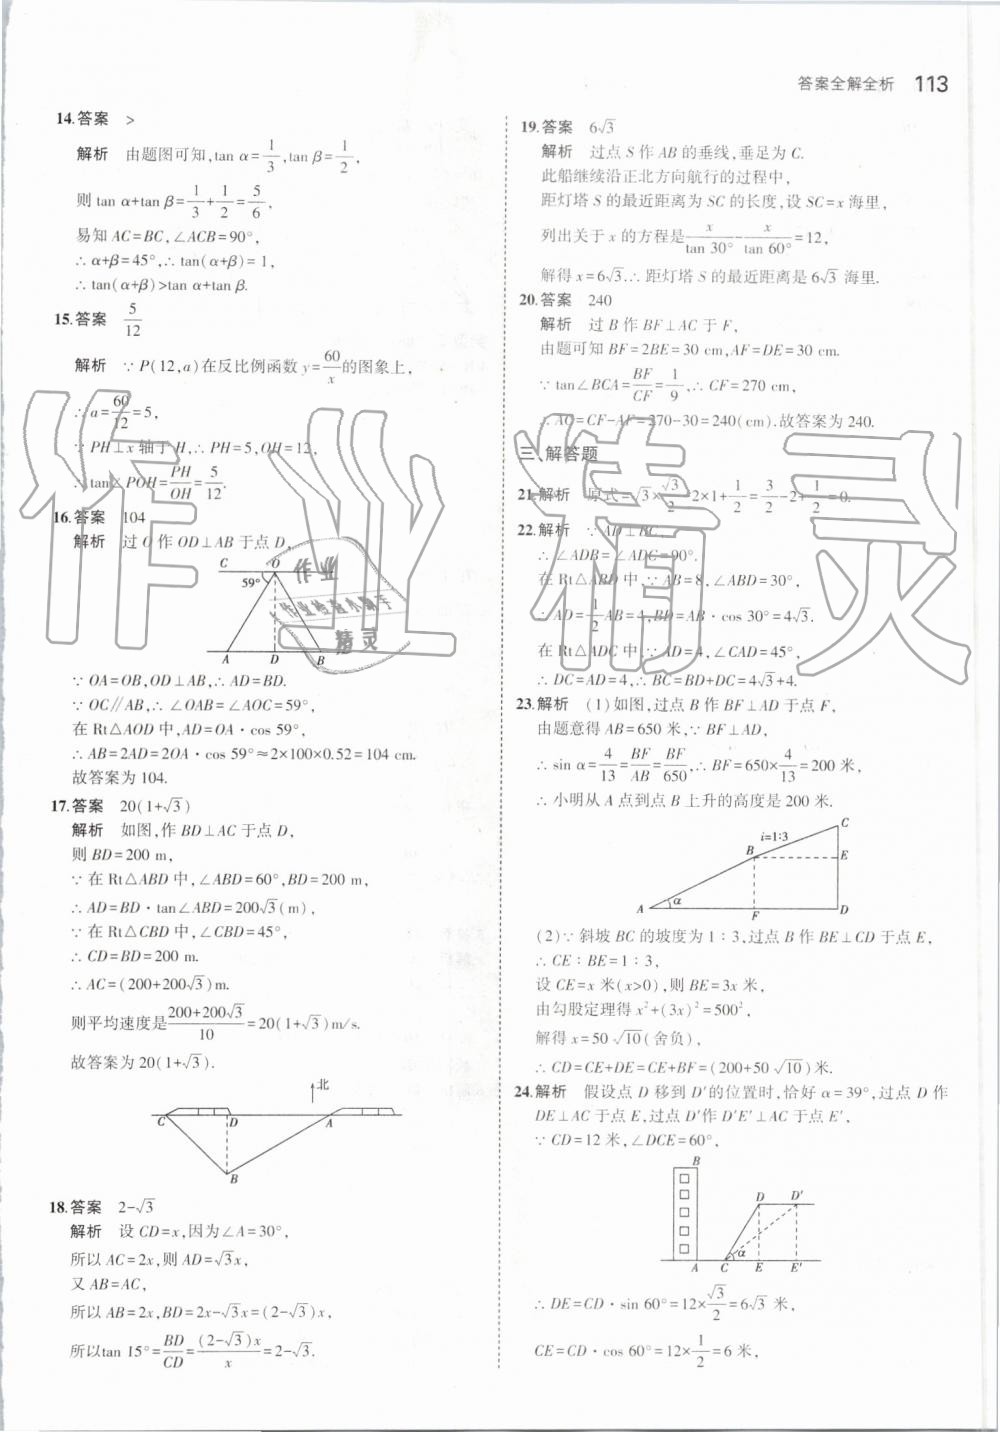 答案全解全析 113
14.答案 >
解析 由题图可知,tan α=1/3,tan β=1/2,
则 tan α+tan β=1/3+1/2=5/6,
易知 AC=BC,∠ACB=90°,
∴ α+β=45°,∴ tan(α+β)=1,
∴ tan(α+β)>tan α+tan β.
15.答案 5/12
解析 ∵ P(12,a)在反比例函数 y=60/x的图象上,
∴ a=60/12=5,
∵ PH⊥x 轴于 H,∴ PH=5,OH=12,
∴ tan∠POH=PH/OH=5/12.
16.答案 104
解析 过 O 作 OD⊥AB 于点 D,
C O
59°
A D B
∵ OA=OB,OD⊥AB,∴ AD=BD.
∵ OC∥AB,∴ ∠OAB=∠AOC=59°,
在 Rt△AOD 中,AD=OA·cos 59°,
∴ AB=2AD=2OA·cos 59°≈2×100×0.52=104 cm.
故答案为 104.
17.答案 20(1+√3)
解析 如图,作 BD⊥AC 于点 D,
则 BD=200 m,
∵ 在 Rt△ABD 中,∠ABD=60°,BD=200 m,
∴ AD=BD·tan∠ABD=200√3(m),
∵ 在 Rt△CBD 中,∠CBD=45°,
∴ CD=BD=200 m.
∴ AC=(200+200√3)m.
则平均速度是(200+200√3)/10=20(1+√3)m/s.
故答案为 20(1+√3).
北
C D A
B
18.答案 2-√3
解析 设 CD=x,因为∠A=30°,
所以 AC=2x,则 AD=√3x,
又 AB=AC,
所以 AB=2x,BD=2x-√3x=(2-√3)x,
所以tan 15°=BD/CD=(2-√3)x/x=2-√3.
19.答案 6√3
解析 过点 S 作 AB 的垂线,垂足为 C.
此船继续沿正北方向航行的过程中,
距灯塔 S 的最近距离为 SC 的长度,设 SC=x 海里,
列出关于 x 的方程是x/tan 30°-x/tan 60°=12,
解得 x=6√3.∴ 距灯塔 S 的最近距离是 6√3 海里.
20.答案 240
解析 过 B 作 BF⊥AC 于 F,
由题可知 BF=2BE=30 cm,AF=DE=30 cm.
∵ tan∠BCA=BF/CF=1/9,∴ CF=270 cm,
∴ AC=CF-AF=270-30=240(cm).故答案为 240.
三、解答题
21.解析 原式=√3×√3/2-2×1+1/2=3/2-2+1/2=0.
22.解析 ∵ AD⊥BC,
∴ ∠ADB=∠ADC=90°.
在 Rt△ABD 中,∵ AB=8,∠ABD=30°,
∴ AD=1/2AB=4,BD=AB·cos 30°=4√3.
在 Rt△ADC 中,∵ AD=4,∠CAD=45°,
∴ DC=AD=4,∴ BC=BD+DC=4√3+4.
23.解析 (1)如图,过点 B 作 BF⊥AD 于点 F,
由题意得 AB=650 米,∵ BF⊥AD,
∴ sin α=4/13=BF/AB=BF/650,∴ BF=650×4/13=200 米,
∴ 小明从 A 点到点 B 上升的高度是 200 米.
C
i=1:3
B E
A α F D
(2)∵ 斜坡 BC 的坡度为 1∶3,过点 B 作 BE⊥CD 于点 E,
∴ CE∶BE=1∶3,
设 CE=x 米(x>0),则 BE=3x 米,
由勾股定理得 x²+(3x)²=500²,
解得 x=50√10(舍负),
∴ CD=CE+DE=CE+BF=(200+50√10)米.
24.解析 假设点 D 移到 D′的位置时,恰好 α=39°,过点 D 作
DE⊥AC 于点 E,过点 D′作 D′E′⊥AC 于点 E′,
∵ CD=12 米,∠DCE=60°,
B
D D′
α
A C E E′
∴ DE=CD·sin 60°=12×√3/2=6√3 米,
CE=CD·cos 60°=12×1/2=6 米,
作业精灵
作业
作业检查小助手
精灵